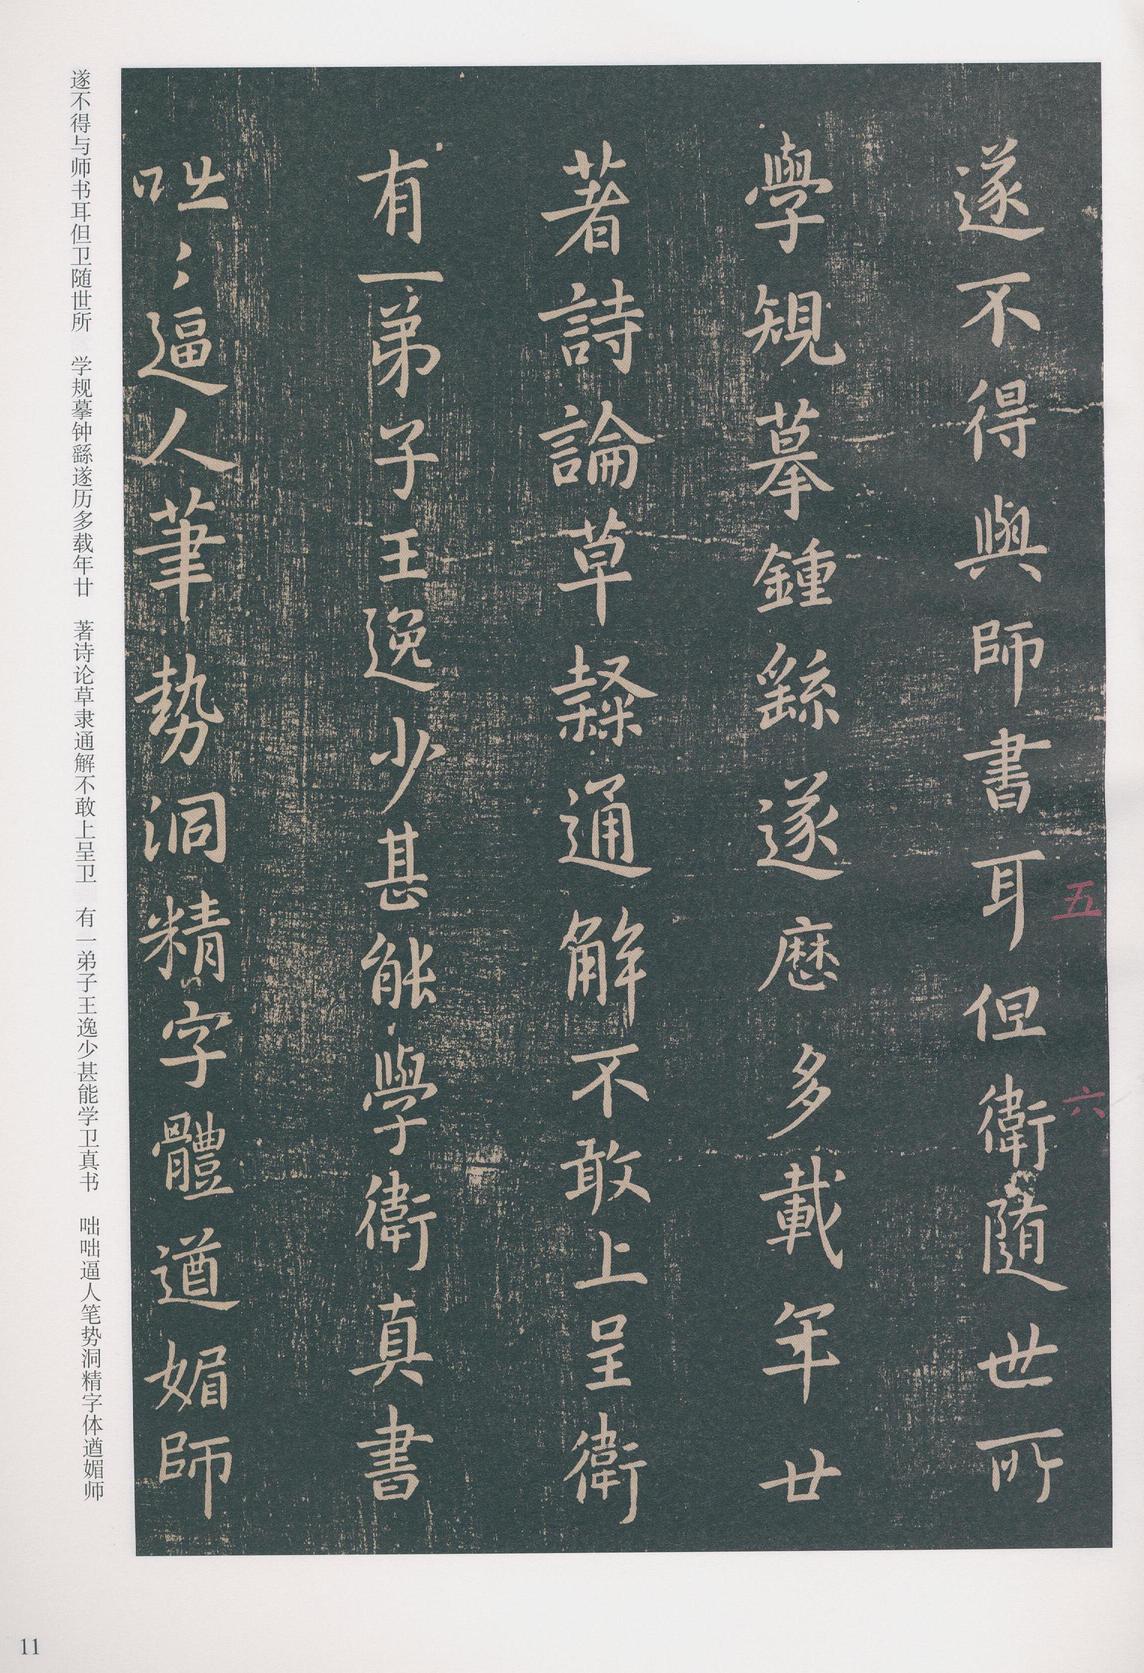 遂不得與師書耳但衛隨世所
學規摹鍾繇遂歷多載年廿
著詩論草隸通解不敢上呈衛
有一弟子王逸少甚能學衛真書
咄〻逼人筆勢洞精字體遒媚師
五
六
遂不得与师书耳但卫随世所　学规摹钟繇遂历多载年廿　著诗论草隶通解不敢上呈卫　有一弟子王逸少甚能学卫真书　咄咄逼人笔势洞精字体遒媚师
11